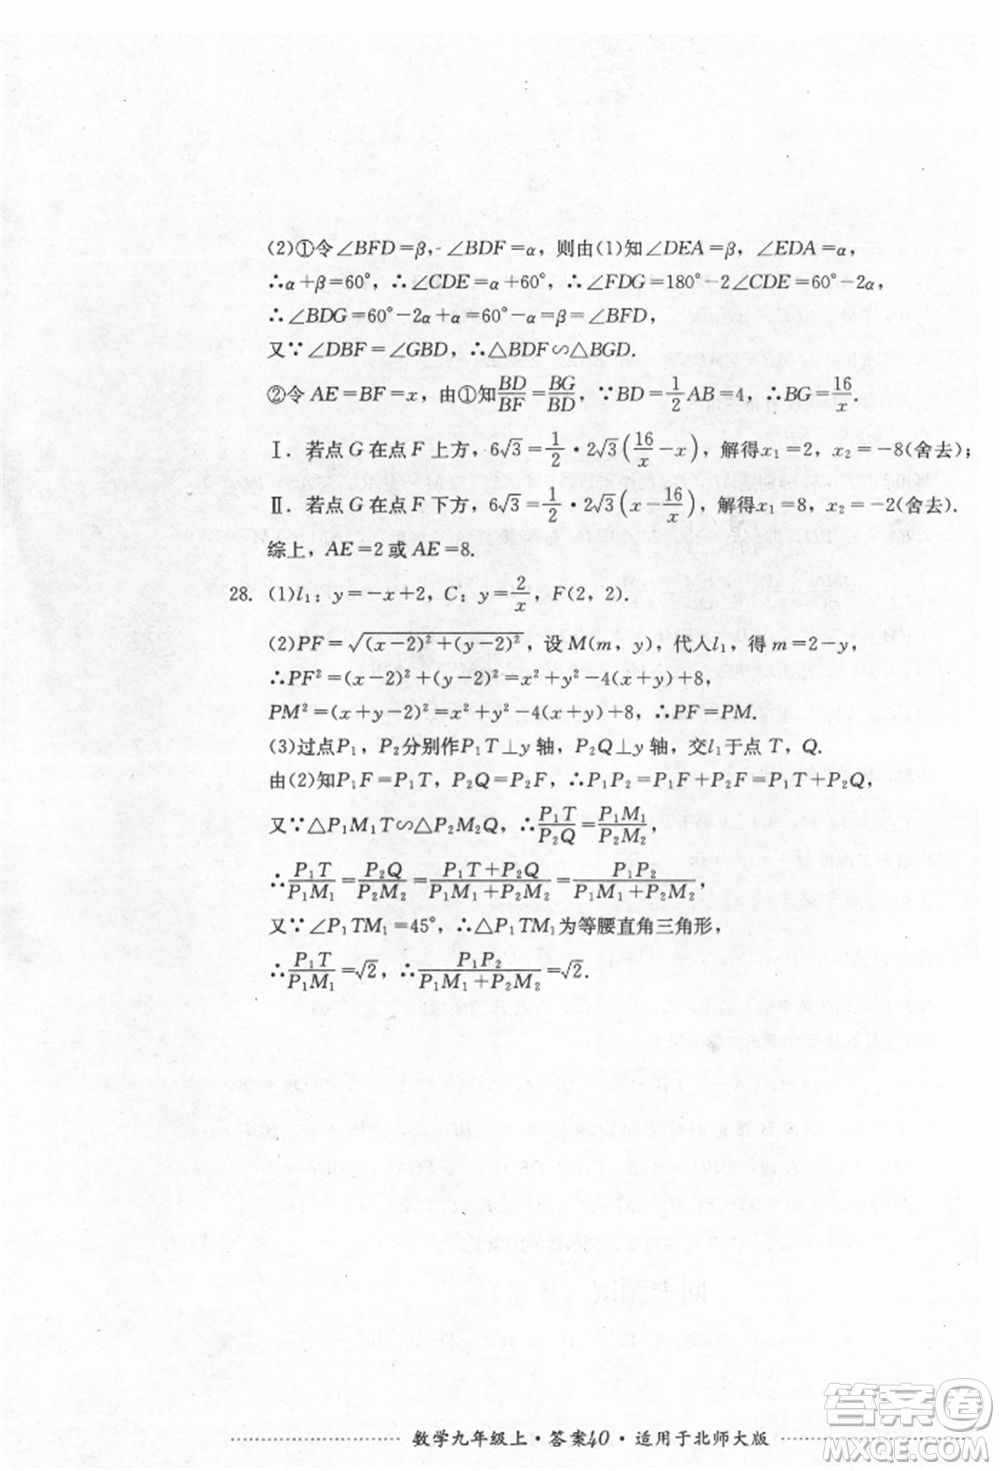 (2)①令∠BFD=β，∠BDF=α，则由(1)知∠DEA=β，∠EDA=α，
∴α+β=60°，∴∠CDE=α+60°，∴∠FDG=180°-2∠CDE=60°-2α，
∴∠BDG=60°-2α+α=60°-α=β=∠BFD，
又∵∠DBF=∠GBD，∴△BDF∽△BGD.
②令AE=BF=x，由①知BD/BF=BG/BD，∵BD=1/2AB=4，∴BG=16/x.
Ⅰ. 若点G在点F上方，6√3=1/2·2√3(16/x-x)，解得x₁=2，x₂=-8(舍去)；
Ⅱ. 若点G在点F下方，6√3=1/2·2√3(x-16/x)，解得x₁=8，x₂=-2(舍去).
综上，AE=2或AE=8.
28. (1)l₁：y=-x+2，C：y=2/x，F(2，2).
(2)PF=√((x-2)²+(y-2)²)，设M(m，y)，代人l₁，得m=2-y，
∴PF²=(x-2)²+(y-2)²=x²+y²-4(x+y)+8，
PM²=(x+y-2)²=x²+y²-4(x+y)+8，∴PF=PM.
(3)过点P₁，P₂分别作P₁T⊥y轴，P₂Q⊥y轴，交l₁于点T，Q.
由(2)知P₁F=P₁T，P₂Q=P₂F，∴P₁P₂=P₁F+P₂F=P₁T+P₂Q，
又∵△P₁M₁T∽△P₂M₂Q，∴P₁T/P₂Q=P₁M₁/P₂M₂，
∴P₁T/P₁M₁=P₂Q/P₂M₂=(P₁T+P₂Q)/(P₁M₁+P₂M₂)=P₁P₂/(P₁M₁+P₂M₂)，
又∵∠P₁TM₁=45°，∴△P₁TM₁为等腰直角三角形，
∴P₁T/P₁M₁=√2，∴P₁P₂/(P₁M₁+P₂M₂)=√2.
数学九年级上·答案40·适用于北师大版
答案圈
MXQE.COM